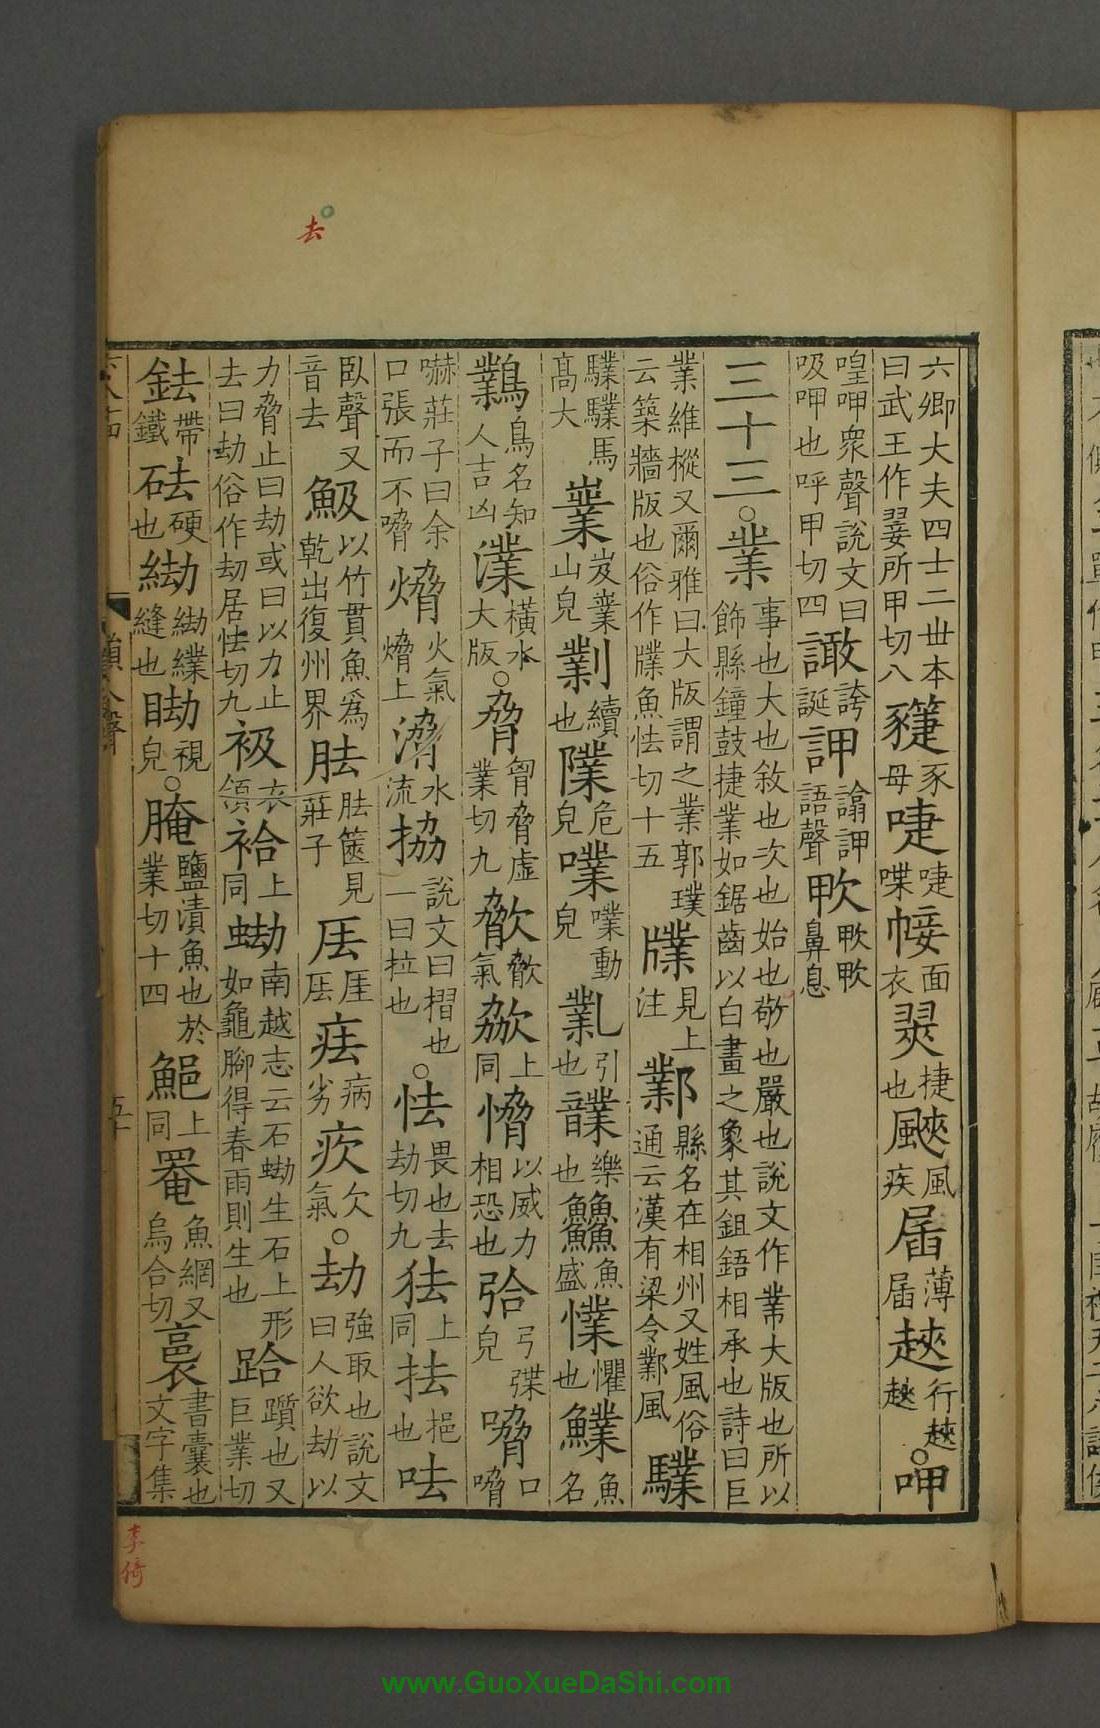 六卿大夫四士二丗本曰武王作翣所甲切八䝕豕母啑啑喋㡪面衣翜捷也䬃風疾届薄届䞣行䞣䞣○呷
喤呷衆聲說文曰吸呷也呼甲切四譀誇誕訷譮訷語聲㰺㰺㰺鼻息
三十三○業事也大也敘也次也始也敬也嚴也說文作業大版也所以飾縣鐘鼓捷業如鋸齒以白畫之象其鉏鋙相承也詩曰巨
業維樅又爾雅曰大版謂之業郭璞云築牆版也俗作牒魚怯切十五牒見上注鄴縣名在相州又姓風俗通云漢有梁令鄴風驜
驜驜馬高大嶪岌嶪山皃㸣續也隟危皃㗼㗼動皃㐖引也䪨樂也䲜魚盛㦜懼也鸈魚名
鸈鳥名知人吉凶澲橫水大版○脅胷脅虛業切九歙歙氣㰸上同愶以威力相恐也弽弓弽皃嗋口嗋
嚇莊子曰余口張而不嗋熁火氣熁上㵩水流拹說文曰摺也一曰拉也○怯畏也去劫切九㹤上同抾挹也呿
臥聲又音去魥以竹貫魚爲乾出復州界胠胠篋見莊子厒厓厒㾀病劣㰦欠氣○劫強取也說文曰人欲劫以
力脅止曰劫或曰以力止去曰劫俗作刦居怯切九衱衣領袷上同蜐南越志云石蜐生石上形如龜腳得春雨則生也跲躓也又巨業切
鉣帶鐵砝硬也䋐䋐緤縫也𥆌視皃○腌鹽漬魚也於業切十四䱒上同罨魚網又烏合切裛書囊也文字集
去
李倚
www.GuoXueDaShi.com